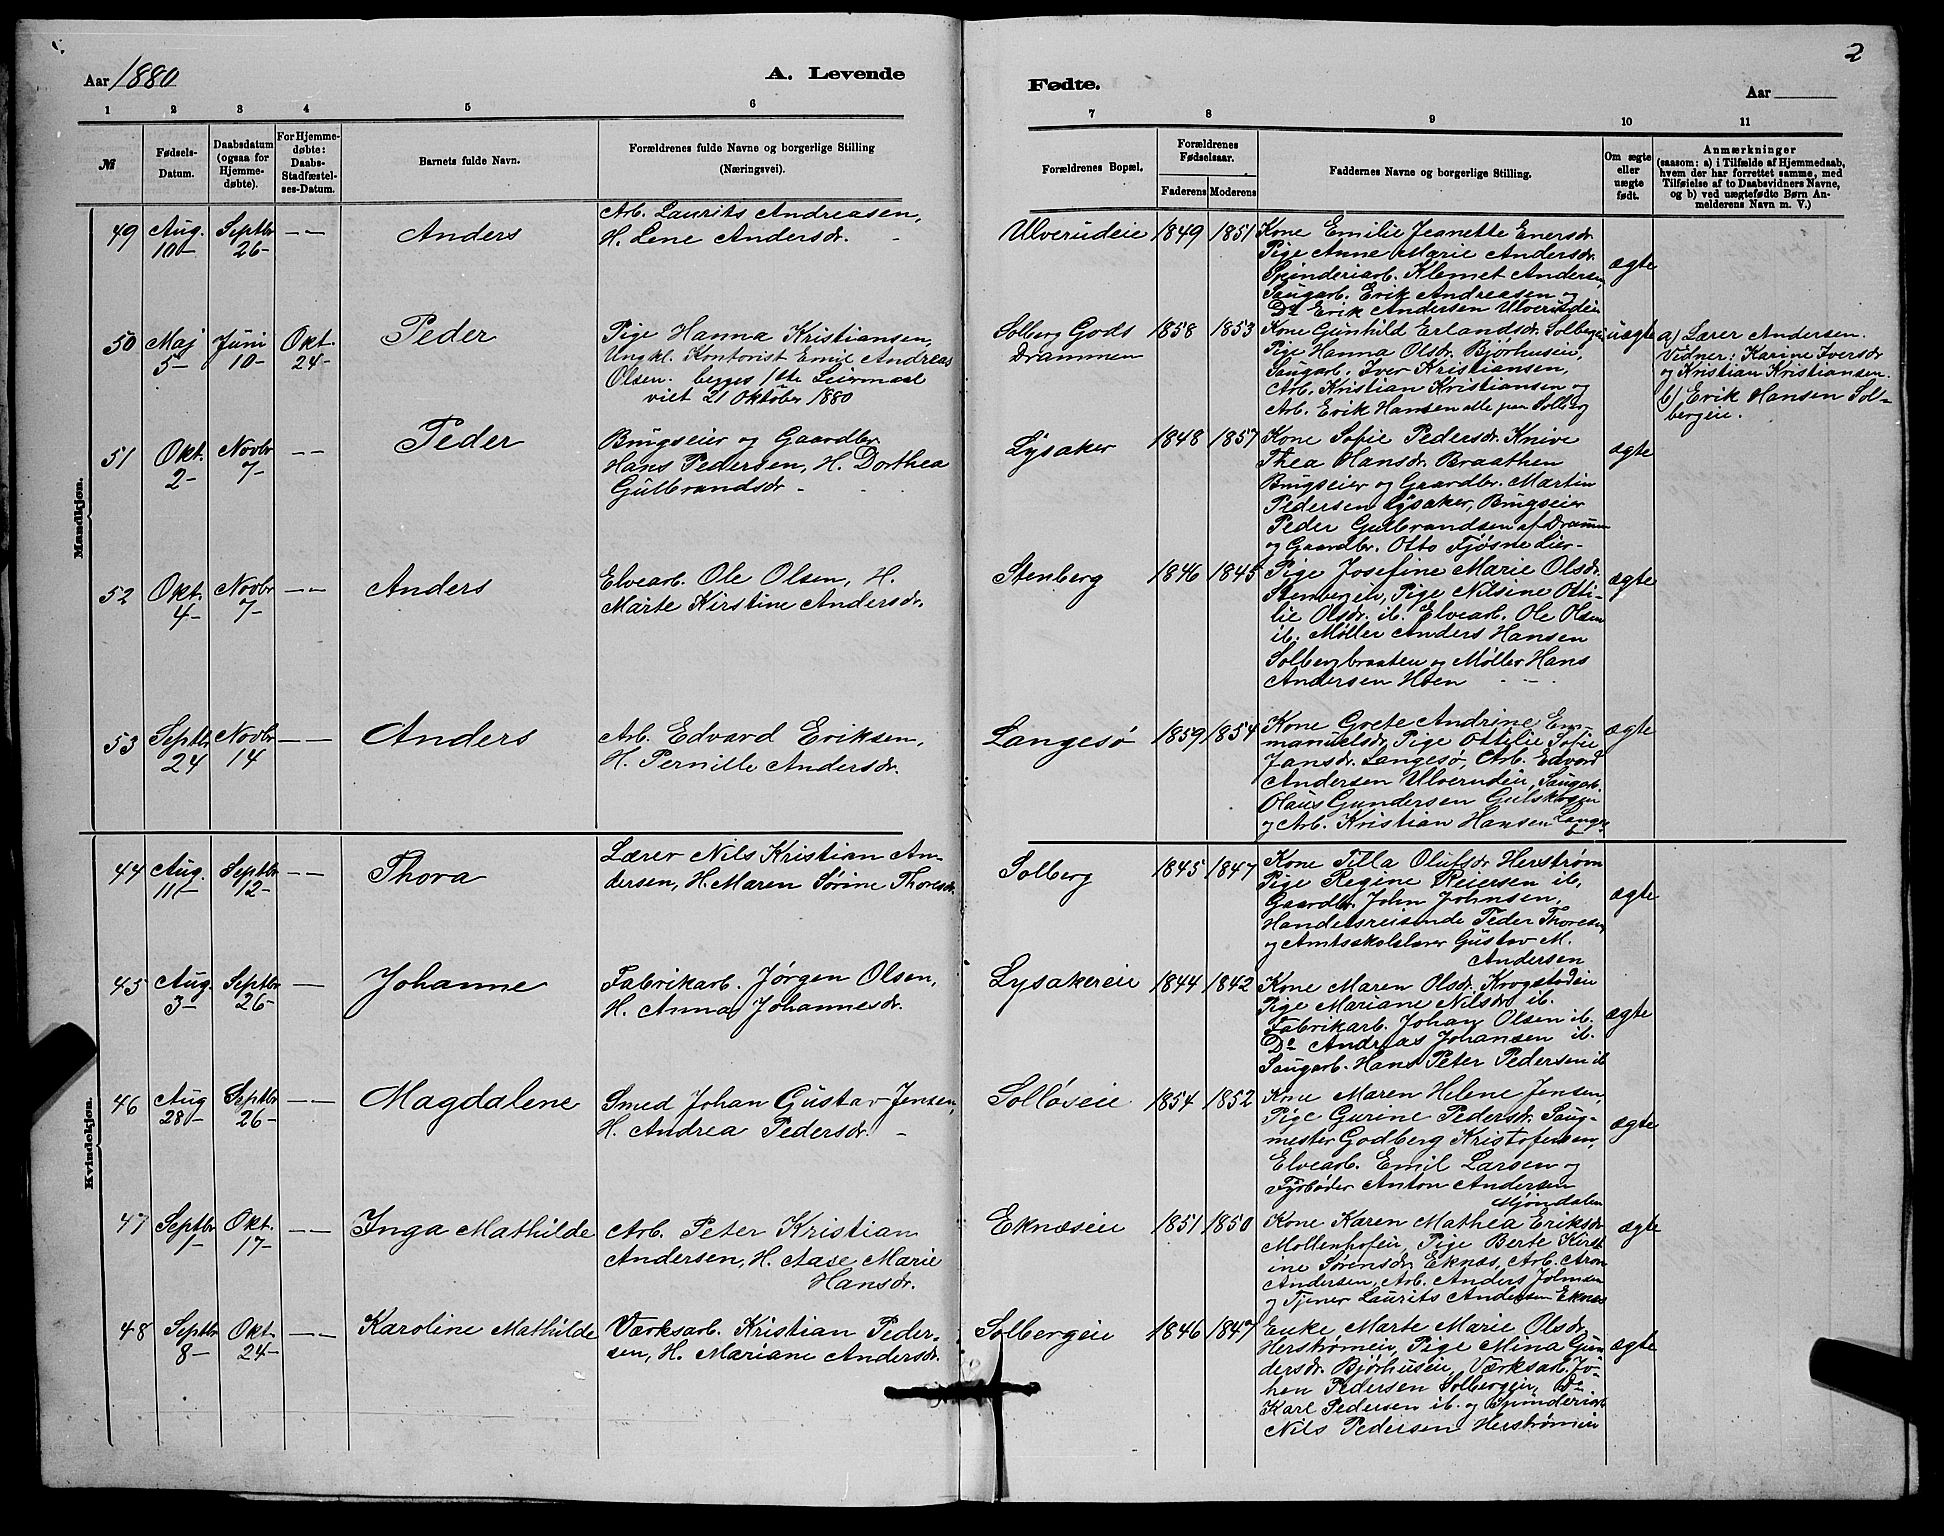 Aar 1880
A. Levende
1 2 3 4 5 6
№
Fødsels-
Datum.
Daabsdatum
(ogsaa for
Hjemme-
døbte).
For Hjemme-
døbte:
Daabs-
Stadfæstel-
ses-Datum.
Barnets fulde Navn.
Forældrenes fulde Navne og borgerlige Stilling
(Næringsvei).
Mandkjøn.
49 Aug. 10- Septbr 26- -- Anders
Arb. Laurits Andreasen,
H. Lene Andersdr. -
50 Maj 5- Juni 10- Okt. 24- Peder
Pige Hanna Kristiansen,
Ungkl. Kontorist Emil Andreas
Olsen. begges 1ste Leiermaal
viet 21 Oktober 1880
51 Okt. 2- Novbr 7- -- Peder
Brugseier og Gaardbr.
Hans Pedersen, H. Dorthea
Gulbrandsdr -
52 Okt. 4- Novbr 7- -- Anders
Elvearb. Ole Olsen, H.
Marte Kirstine Andersdr.
53 Septbr 24 Novbr 14 -- Anders
Arb. Edvard Eriksen,
H. Pernille Andersdr.
Kvindekjøn.
44 Aug. 11- Septbr 12- -- Thora
Lærer Nils Kristian An-
dersen, H. Maren Sørine Thoresdr
45 Aug. 3- Septbr 26- -- Johanne
Fabrikarb. Jørgen Olsen,
H. Anna Johannesdr.
46 Aug 28- Septbr 26- -- Magdalene
Smed Johan Gustav Jensen,
H. Andrea Pedersdr. -
47 Septbr 1- Okt. 17- -- Inga Mathilde
Arb. Peter Kristian
Andersen, H. Aase Marie
Hansdr.
48 Septbr 8- Okt. 24- -- Karoline Mathilde
Værksarb. Kristian Peder-
sen, H. Mariane Andersdr.
2
Fødte.
Aar
7 8 9 10 11
Forældrenes Bopæl.
Forældrenes
Fødselsaar.
Faderens Moderens
Faddernes Navne og borgerlige Stilling.
Om ægte
eller
uægte
født.
Anmærkninger
(saasom: a) i Tilfælde af Hjemmedaab,
hvem der har forrettet samme, med
Tilføielse af to Daabsvidners Navne,
og b) ved uægtefødte Børn An-
melderens Navn m. V.)
Ulverudeie 1849 1851 ægte
Kone Emilie Jeanette Enersdr
Pige Anne Marie Andersdr.
Spinderiarb. Klemet Andersen,
Saugarb. Erik Andreasen og
Do Erik Andersen Ulverudeie
Solberg Gods
Drammen 1858 1853 uægte
Kone Gunhild Erlandsdr. Solbergeie
Pige Hanna Olsdr. Bjørhuseie,
Saugarb. Iver Kristiansen,
Arb. Kristian Kristiansen og
Arb. Erik Hansen alle paa Solberg
a) Lærer Andersen.
Vidner: Karine Iversdr
og Kristian Kristiansen.
b) Erik Hansen Sol-
bergeie.
Lysaker 1848 1857 ægte
Kone Sofie Pedersdr. Knive
Thea Hansdr. Braathen
Brugseier og Gaardbr. Martin
Pedersen Lysaker, Brugseier
Peder Gulbrandsen af Dramm
og Gaardbr. Otto Fjøsne Lier-
Stenberg 1846 1845 ægte
Pige Josefine Marie Olsdr.
Stenbergen, Pige Nilsine Otti-
lie Olsdr. ib. Elvearb. Ole Olsen
ib. Møller Anders Hansen
Solbergbraaten og Møller Hans
Andersen Hoen - -
Langesø 1859 1854 ægte
Kone Grete Andrine Em-
manuelsdr, Pige Ottilie Sofie
Jansdr. Langesø, Arb. Edvard
Andersen Ulverudeie, Saugarb.
Olaus Gundersen Gulskogen
og Arb. Kristian Hansen Langesø
Solberg 1845 1847 ægte
Kone Tilla Olufsdr Herstrøm
Pige Regine Reiersen ib.
Gaardbr. John Johnsen,
Handelsreisende Peder Thoresen
og Amtsskolelærer Gustav M.
Andersen
Lysakereie 1844 1842 ægte
Kone Maren Olsdr. Krogstadeie
Pige Mariane Nilsdr ib.
Fabrikarb. Johan Olsen ib.
Do Andreas Johansen ib.
Saugarb. Hans Peter Pedersen ib
Solløseie 1854 1852 ægte
Kone Maren Helene Jensen,
Pige Gurine Pedersdr. Saug-
mester Godberg Kristofersen,
Elvearb. Emil Larsen og
Fyrbøder Anton Andersen
Mjøndalen
Eknæseie 1851 1850 ægte
Kone Karen Mathea Eriksdr
Mollenhofeie, Pige Berte Kirst
ine Sørensdr. Eknæs, Arb. Aron
Andersen, Arb. Anders Johnsen
og Tjener Laurits Andersen Eknæs
Solbergeie 1846 1847 ægte
Enke Marte Marie Olsdr
Herstrømen, Pige Mina Gun
dersdr. Bjørhuseie, Værksarb. Jo-
hen Pedersen Solbergeie, Do
Karl Pedersen ib. og Spinderiarb
Nils Pedersen Herstrømeie